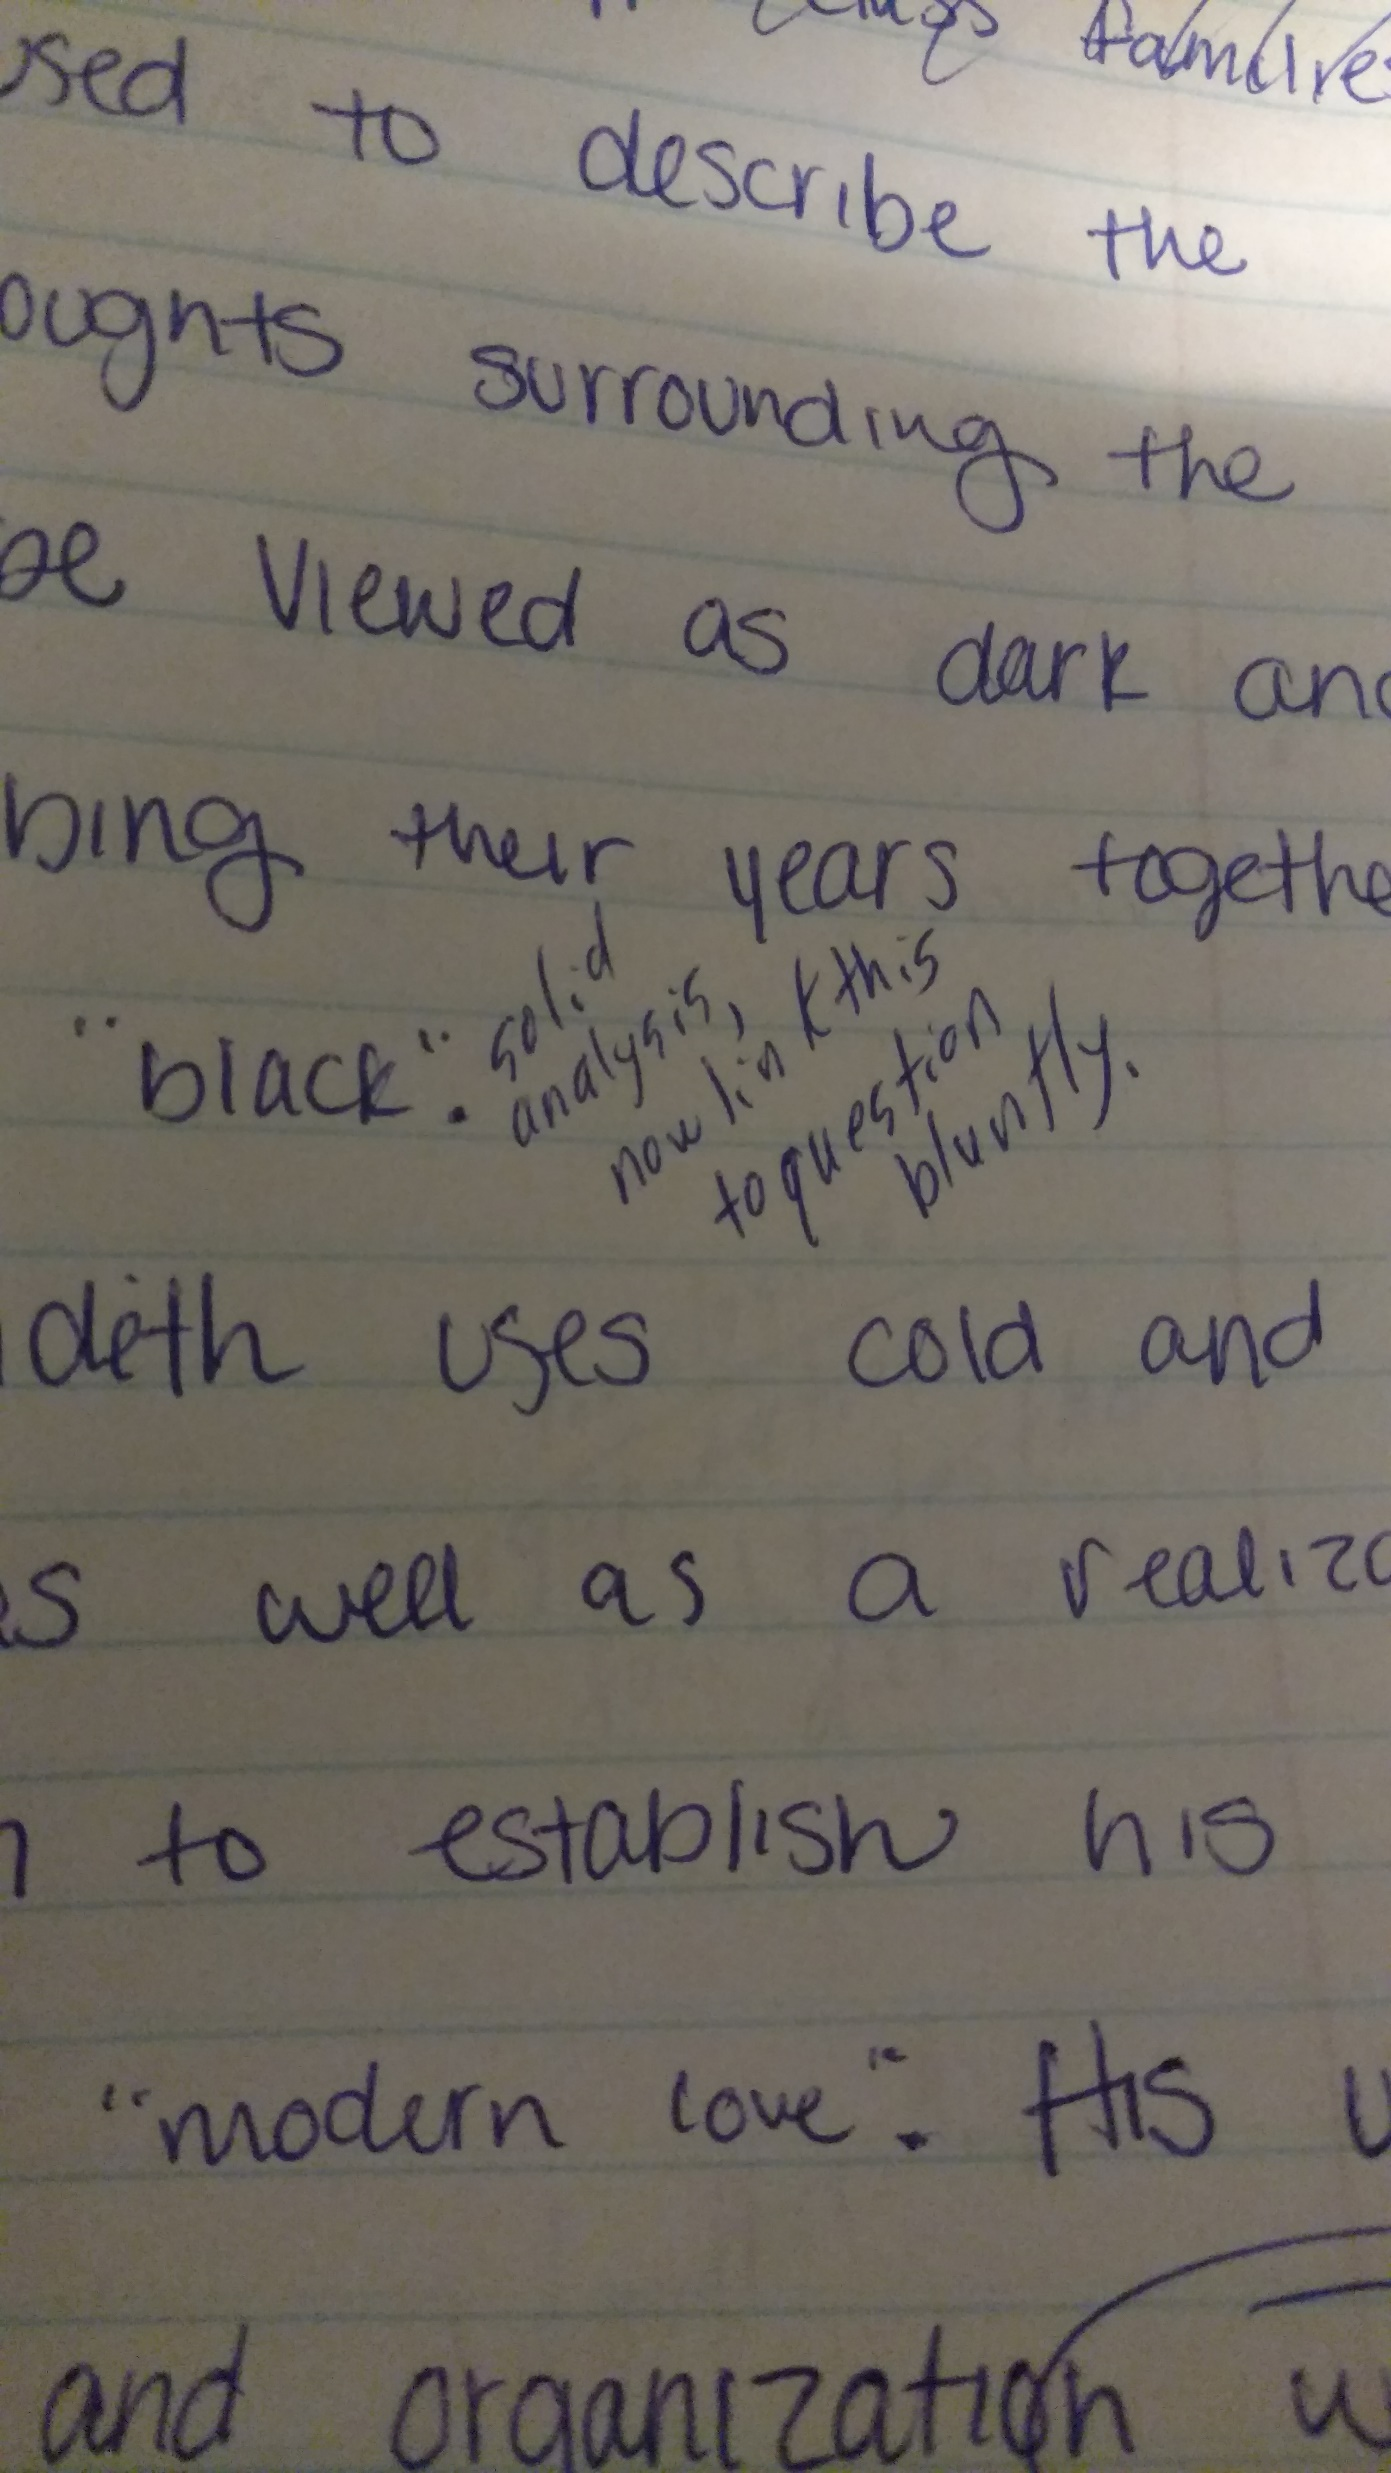 used to describe the
oughts surrounding the
be viewed as dark and
bing their years togethe
"black". solid
analysis,
now link this
to question
bluntly.
deth uses cold and
as well as a realiza
to establish his
"modern love". His
and organization